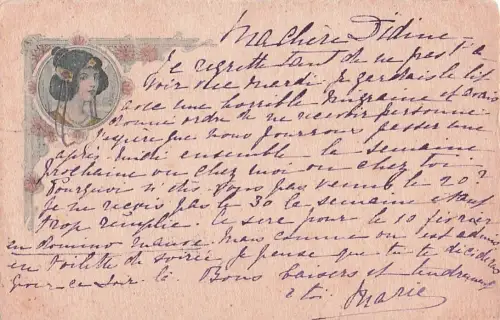 Ma chère Didine
Je regrette tant de ne pas t'a
voir vue mardi je gardais le lit
avec une horrible migraine et avais
donné ordre de ne recevoir personne
J'espère que nous pourrons passer une
après-midi ensemble la semaine
prochaine ou chez moi ou chez toi
Pourquoi n'êtes vous pas venus le 20?
Je ne reçois pas le 30 la semaine étant
trop remplie. Ce sera pour le 10 février
en domino mauve. Mais comme on est admis
en toilette de soirée je pense que tu te décideras
pour ce soir là. Bons baisers et tendresses
à toi Marie